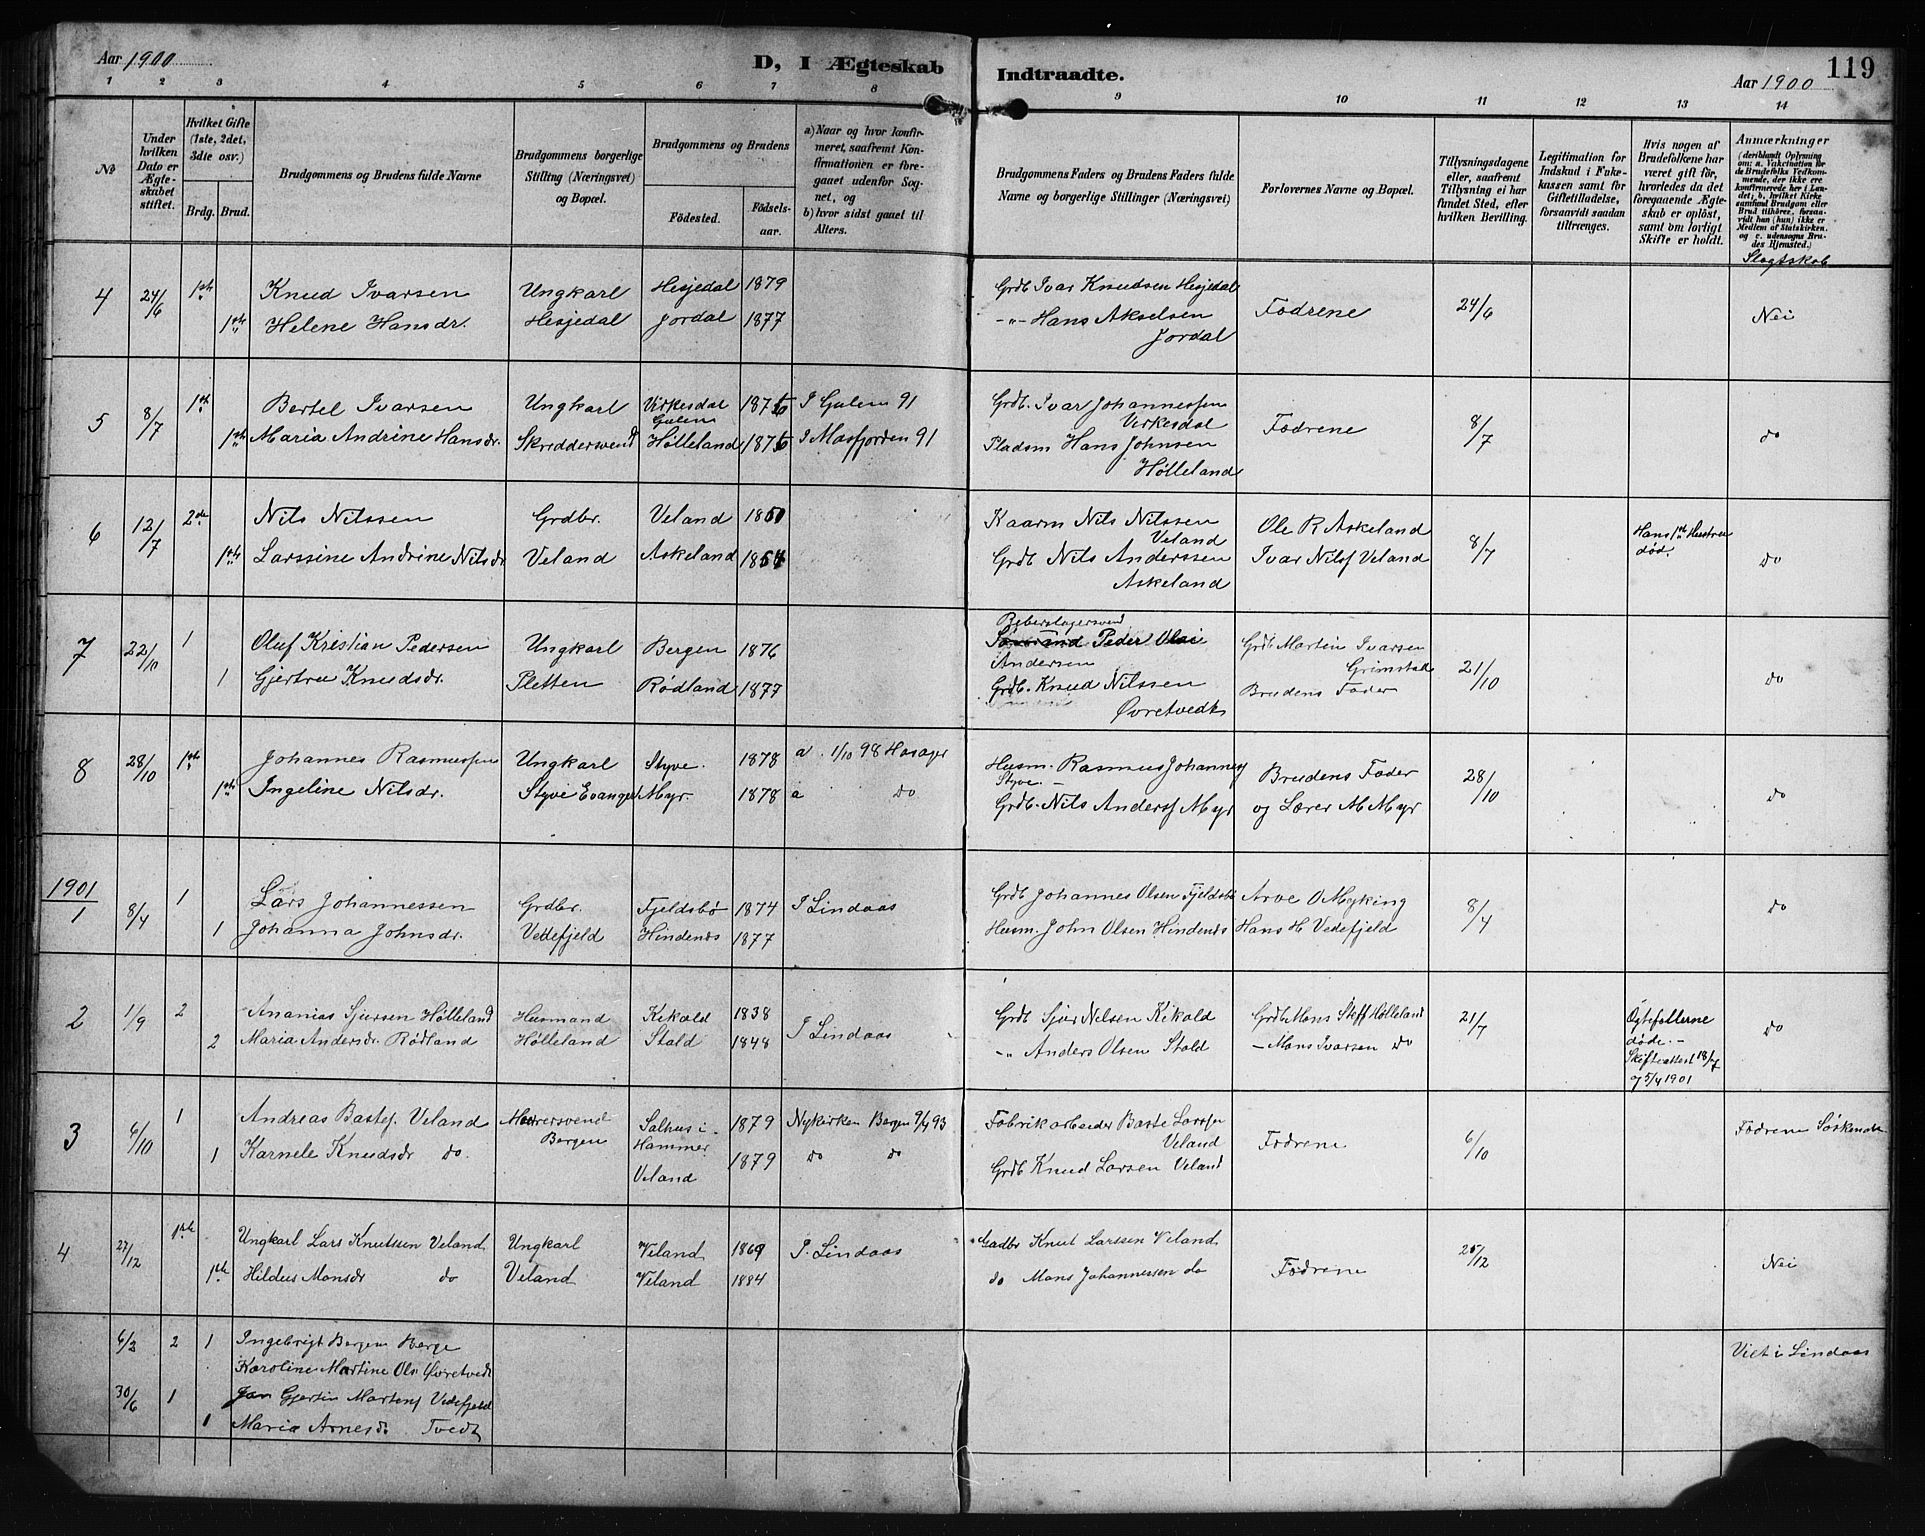 Aar 1900
D, I Ægteskab
Indtraadte.
Aar 1900
119
1 2 3 4 5 6 7 8 9 10 11 12 13 14
No
Under hvilken Dato er Ægteskabet stiftet.
Hvilket Gifte (1ste, 2det, 3die osv.)
Brdg. Brud.
Brudgommens og Brudens fulde Navne
Brudgommens borgerlige Stilling (Næringsvei) og Bopæl.
Brudgommens og Brudens
Fødested.
Fødselsaar.
a) Naar og hvor konfirmeret, saafremt Konfirmationen er foregaaet udenfor Sognet, og
b) hvor sidst gaaet til Alters.
Brudgommens Faders og Brudens Faders fulde Navne og borgerlige Stillinger (Næringsvei)
Forlovernes Navne og Bopæl.
Tillysningsdagene eller, saafremt Tillysning ei har fundet Sted, efter hvilken Bevilling.
Legitimation for Indskud i Enkekassen samt for Giftetilladelse, forsaavidt saadan tiltrænges.
Hvis nogen af Brudefolkene har været gift før, hvorledes da det foregaaende Ægteskab er opløst, samt om lovligt Skifte er holdt.
Anmærkninger
(deriblandt Oplysning om: a. Vakcination for de Brudefolks Vedkommende, der ikke ere konfirmerede her i Landet; b. hvilket Kirkesamfund Brudgom eller Brud tilhører, forsaavidt han (hun) ikke er Medlem af Statskirken. og c. udensogns Brudes Hjemsted.)
Slægtskab
4 24/6 1ste Knud Ivarsen Ungkarl Hesjedal 1879 Grdb. Ivar Knudsen Hesjedal Fædrene 24/6 Nei
1ste Helene Hansdr. Hesjedal Jordal 1877 -"- Hans Akselsen
Jordal
5 8/7 1ste Bertel Ivarsen Ungkarl Virkesdal Gulen I Gulen 91 Grdb. Ivar Johannessen Virkesdal Fædrene 8/7 do
1ste Maria Andrine Hansdr. Skrædersvend Hølleland I Masfjorden 91 Pladsm Hans Johnsen
Hølleland
6 12/7 2de Nils Nilssen Grdbr. Veland Kaarm Nils Nilssen Veland Ole R Askeland 8/7 Hans 1ste Hustru død. do
1ste Larssine Andrine Nilsdr Veland Askeland Grdb Nils Anderssen Ivar Nilss Veland
Askeland
7 22/10 1 Oluf Kristian Pedersen Ungkarl Bergen 1876 Peder Olai Andersen Grdb Martin Ivarsen Grimstad 21/10 do
1 Gjertru Knudsdr. Pletten Rødland 1877 Grdb. Knud Nilssen Brudens Fader
Øvretvedt
8 28/10 1ste Johannes Rasmussen Ungkarl Styve. 1878 a. 1/10 98 Hosager Husm. Rasmus Johanness Styve. - Brudens Fader 28/10 do
1ste Ingeline Nilsdr. Styve Evanger Myr. 1878 a do Grdb. Nils Anderss Myr og Lærer M Myr
1901
1 8/4 1 Lars Johannessen Grdbr. Fjeldsbø 1874 I Lindaas Grdb Johannes Olsen Fjeldsbø Arve O Myking 8/4 do
1 Johanna Johnsdr. Vedefjeld Hindenes 1877 Husm. John Olsen Hindenes Hans H Vedefjeld
2 1/9 2 Ananias Sjursen Hølleland Husmand Kikold 1838 I Lindaas Grdb Sjur Nelsen Kikold Grdb Mons Steff Hølleland 21/7 Ægtefællerne døde. - Skifteattest 18/7 og 5/4 1901 do
2 Maria Andersdr. Rødland Hølleland Stald 1848 -"- Anders Olsen Stald - Mons Ivarsen do
3 6/10 1 Andreas Bastes. Veland Murersvend Bergen Salhus i Hammer 1879 Nykirken Bergen 9/4 93 Fabrikarbeider Baste Larssen Veland Fædrene 6/10 Fædrene Søskende
1 Karnele Knudsdr do. Veland 1879 do do Grdb Knud Larsen Veland
4 27/12 1ste Ungkarl Lars Knutssen Veland Ungkarl Veland 1869 I. Lindaas Gadbr Knut Larssen Veland Fædrene Nei
1ste Hildus Monsdr do Veland Veland 1884 do Mons Johannessen do
6/2 2 1 Ingebrigt Bergem Berge Viet i Lindaas
Karoline Martine Ols Øvretvedt
30/6 1 Jan Gjertin Martens Vedefjeld
1 Maria Arnesdr Tvedt